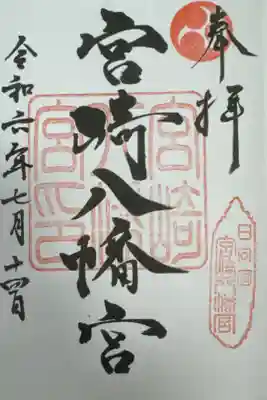 奉拝
日向国
宮崎八幡宮
宮崎八幡宮
宮印
令和六年七月十四日